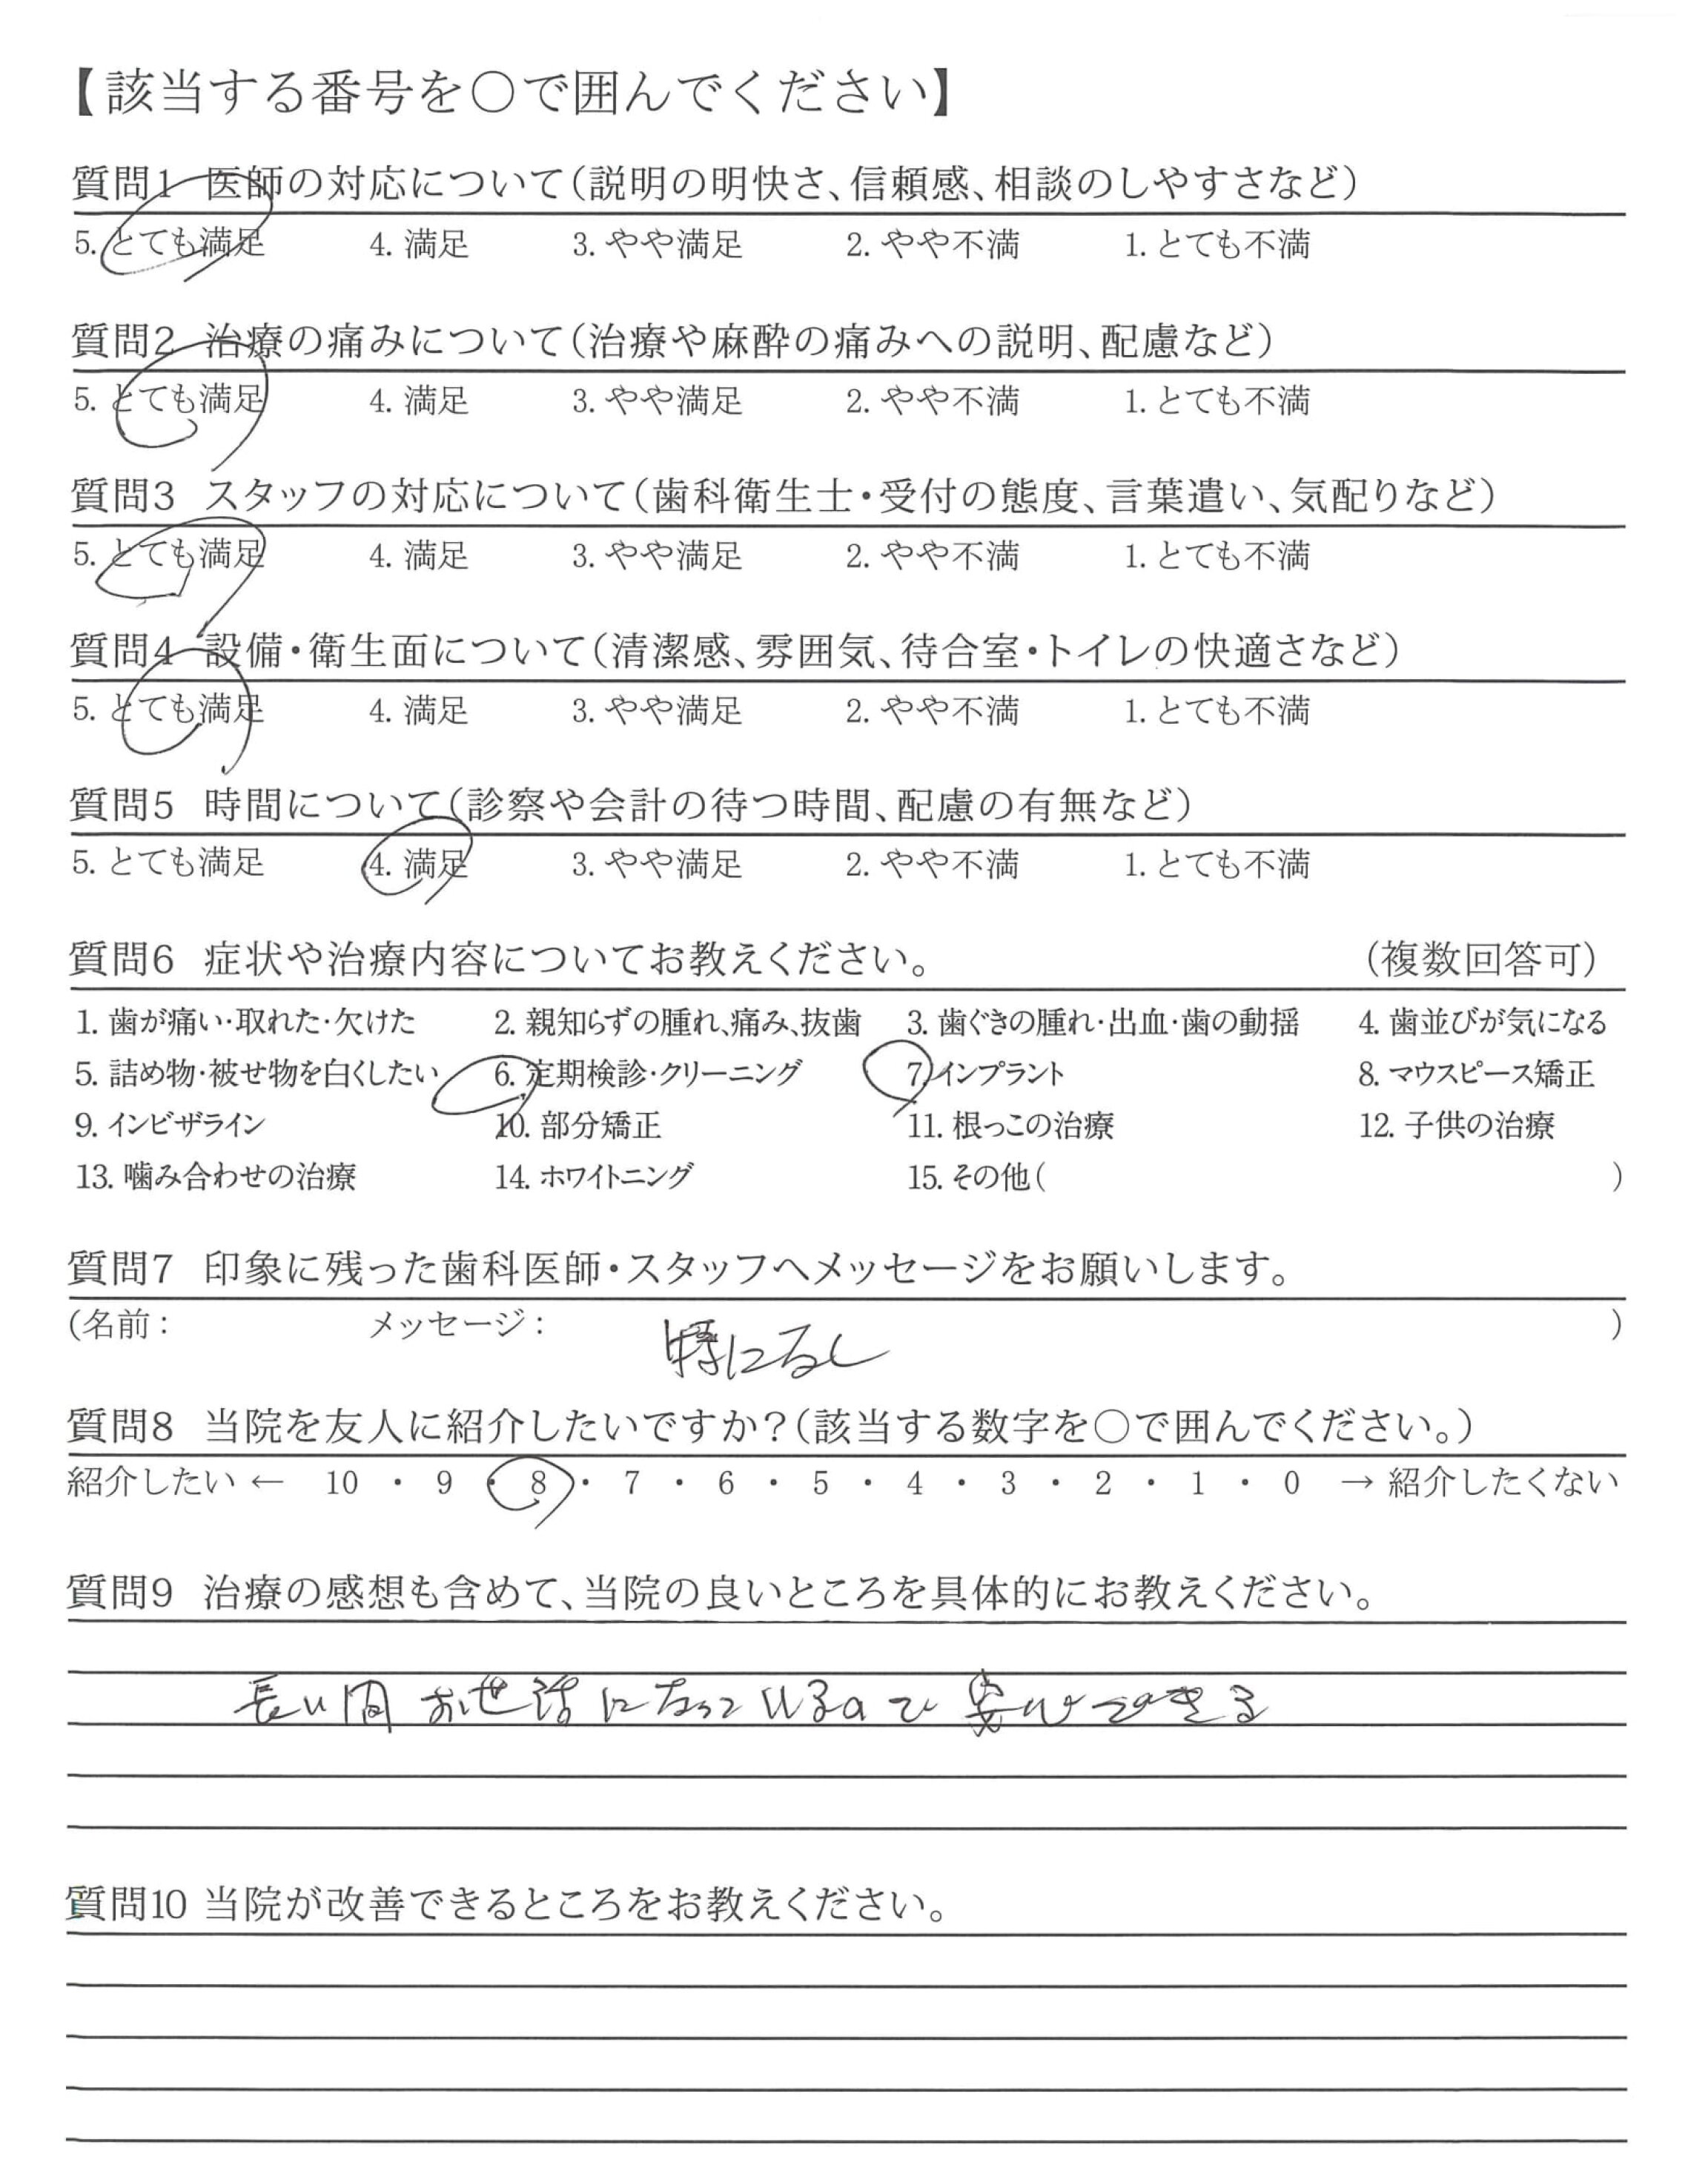 【該当する番号を○で囲んでください】
質問1 医師の対応について（説明の明快さ、信頼感、相談のしやすさなど）
5. とても満足 4. 満足 3. やや満足 2. やや不満 1. とても不満
質問2 治療の痛みについて（治療や麻酔の痛みへの説明、配慮など）
5. とても満足 4. 満足 3. やや満足 2. やや不満 1. とても不満
質問3 スタッフの対応について（歯科衛生士・受付の態度、言葉遣い、気配りなど）
5. とても満足 4. 満足 3. やや満足 2. やや不満 1. とても不満
質問4 設備・衛生面について（清潔感、雰囲気、待合室・トイレの快適さなど）
5. とても満足 4. 満足 3. やや満足 2. やや不満 1. とても不満
質問5 時間について（診察や会計の待つ時間、配慮の有無など）
5. とても満足 4. 満足 3. やや満足 2. やや不満 1. とても不満
質問6 症状や治療内容についてお教えください。 （複数回答可）
1. 歯が痛い・取れた・欠けた 2. 親知らずの腫れ、痛み、抜歯 3. 歯ぐきの腫れ・出血・歯の動揺 4. 歯並びが気になる
5. 詰め物・被せ物を白くしたい 6. 定期検診・クリーニング 7. インプラント 8. マウスピース矯正
9. インビザライン 10. 部分矯正 11. 根っこの治療 12. 子供の治療
13. 噛み合わせの治療 14. ホワイトニング 15. その他（ ）
質問7 印象に残った歯科医師・スタッフへメッセージをお願いします。
（名前： メッセージ： 特になし ）
質問8 当院を友人に紹介したいですか？（該当する数字を○で囲んでください。）
紹介したい ← 10 ・ 9 ・ 8 ・ 7 ・ 6 ・ 5 ・ 4 ・ 3 ・ 2 ・ 1 ・ 0 → 紹介したくない
質問9 治療の感想も含めて、当院の良いところを具体的にお教えください。
長い間お世話になっているので安心できる
質問10 当院が改善できるところをお教えください。